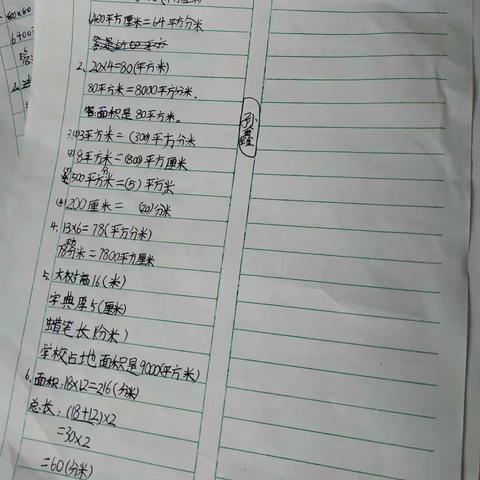 6400平方厘米=64平方分米
2. 20×4=80(平方米)
80平方米=8000平方分米.
答:面积是80平方米。
3.(1)3平方米=(300)平方分米
(2)8平方米=(800)平方厘米
(3)500平方分米=(5)平方米
(4)200厘米= (20)分米
4. 13×6=78(平方分米)
78平方分米=7800平方厘米
5. 大树高16(米)
字典厚5(厘米)
蜡笔长1(分米)
学校占地面积是9000(平方米)
6. 面积:18×12=216(分米)
总长:(18+12)×2
=30×2
=60(分米)
孙鑫